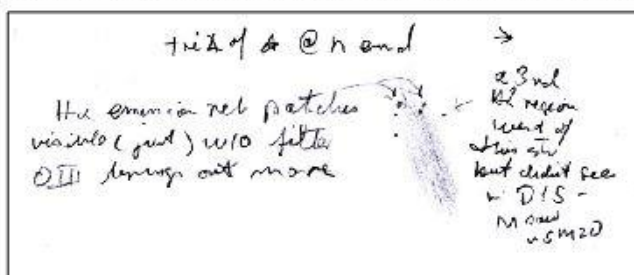 tri Δ of ☆ @ n end →
Hα emission neb patches
visible (just) w/o filter
OIII brings out more
a 3rd
H2 region
west of
this str
but didnt see
in D15 -
M saw
in SM20